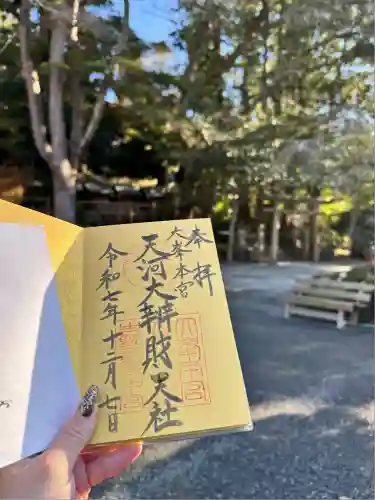 奉拝
大峯本宮
天河大辨財天社
令和七年十二月七日